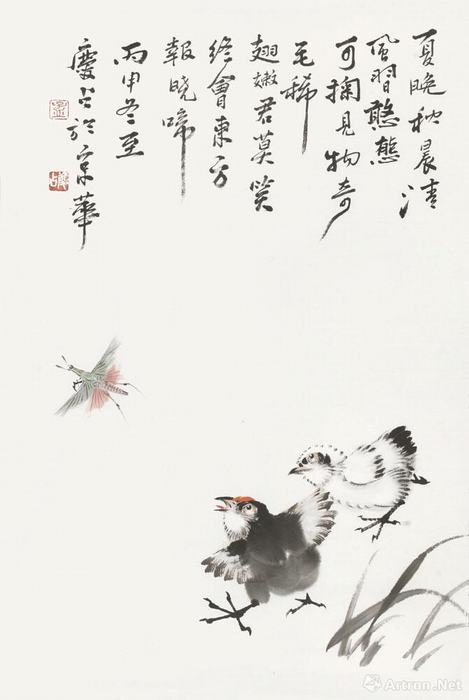 夏晚秋晨清
風習憨態
可掬見物奇
毛稀
翅嫩君莫笑
終會東方
報曉啼
丙申冬至
慶占於京華
Artron.Net